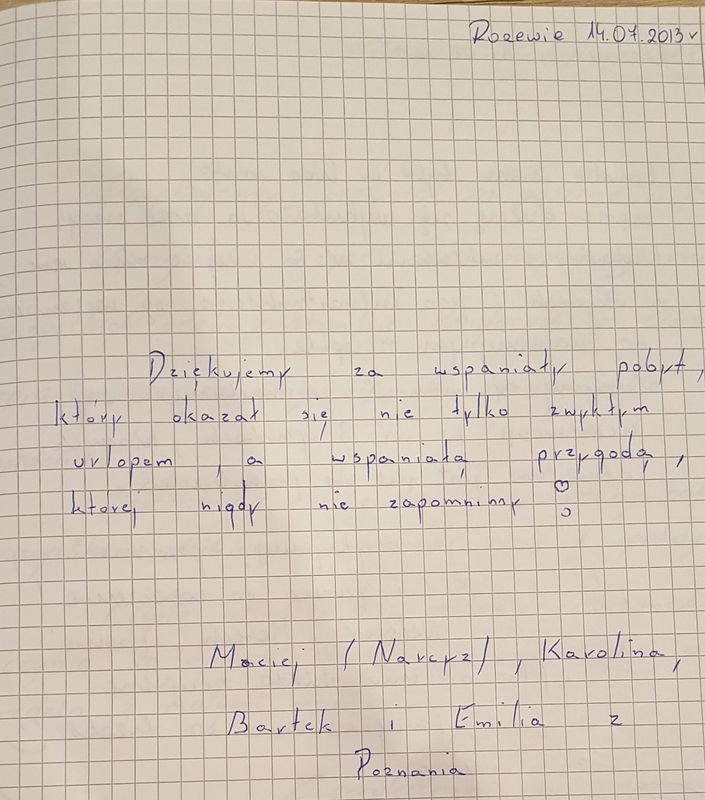 Rozewie 14.07.2013r
Dziękujemy za wspaniały pobyt,
który okazał się nie tylko zwykłym
urlopem, a wspaniałą przygodą,
której nigdy nie zapomnimy!
Maciej (Narcyz), Karolina,
Bartek i Emilia z
Poznania